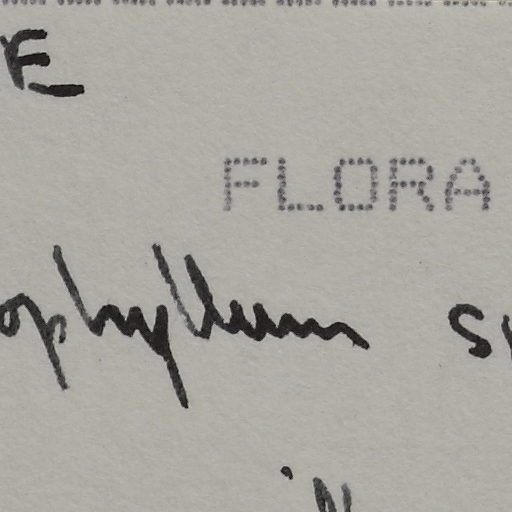 E
FLORA
ophyllum s